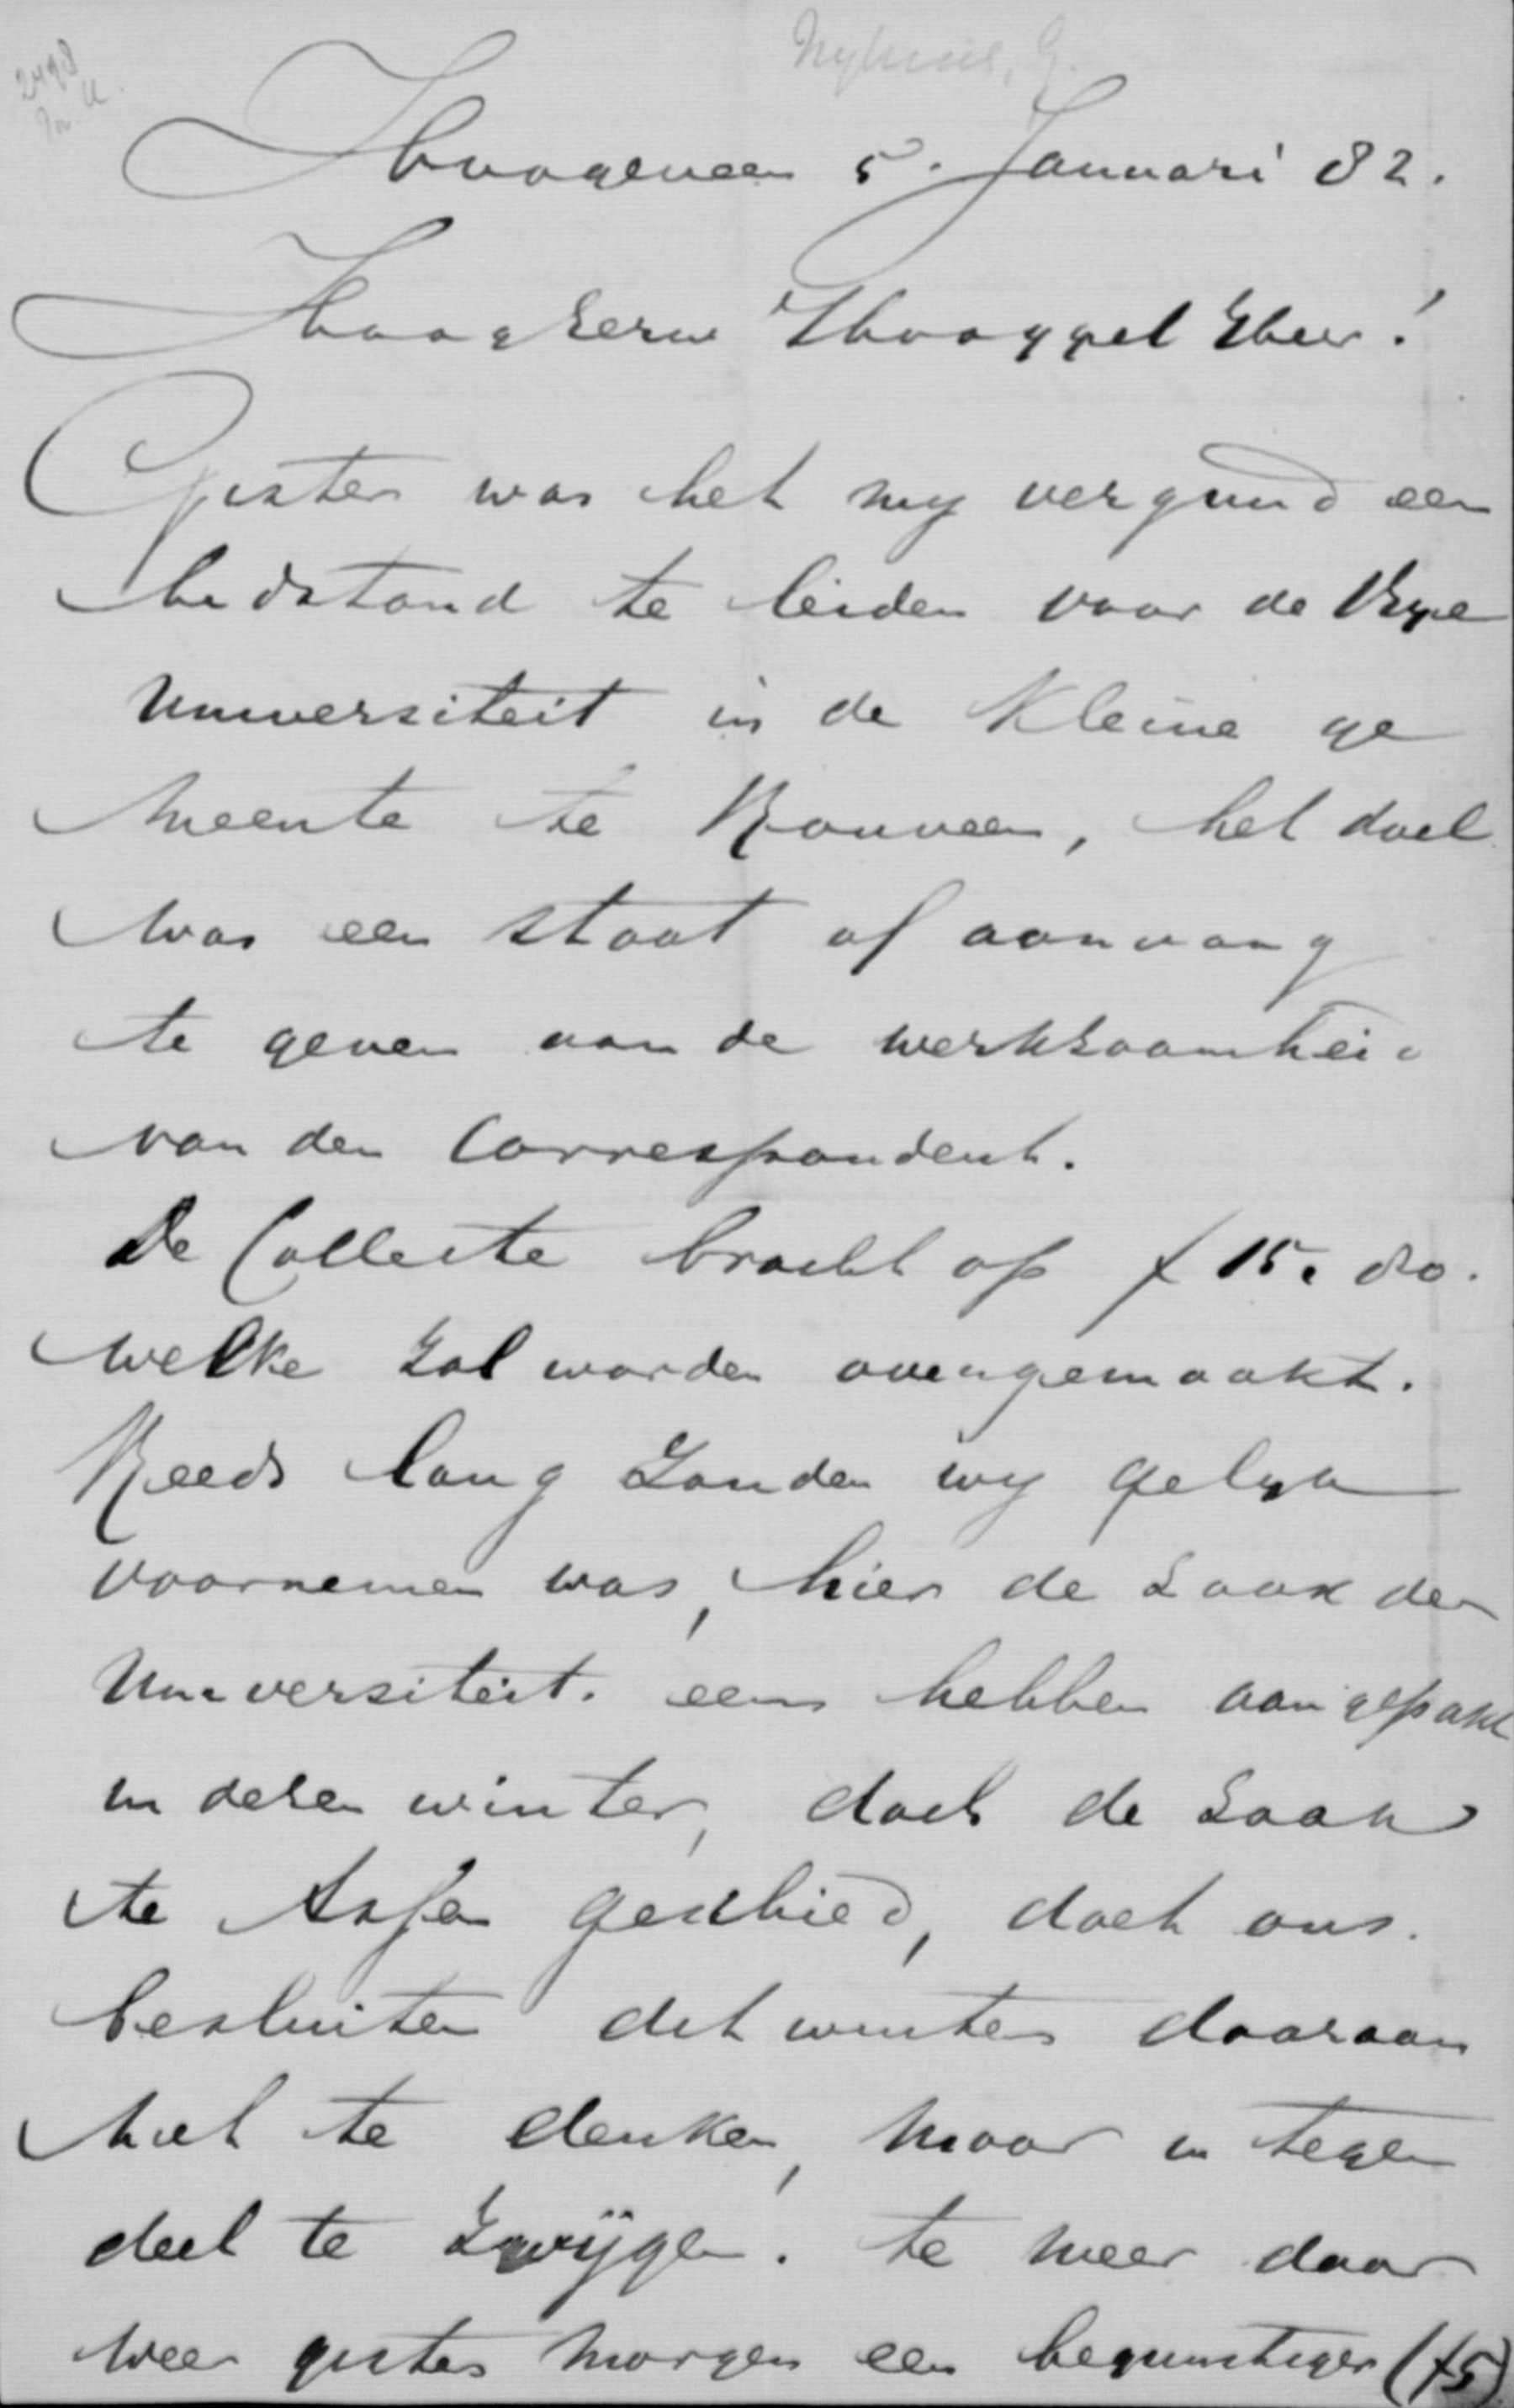 Hoogeveen 5. Januari 82.
Hoogeerw Hooggel Heer!
Gister was het my vergund een
bidstond te leiden voor de Vrye
Universiteit in de Kleine ge
meente te Rouveen, het doel
was een stoot of aanvang
te geven aan de werkzaamheid
van den Correspondent.
De Collecte bracht op f 15.80.
welke zal worden overgemaakt.
Reeds lang zouden wy gelyk
voornemen was, hier de zaak der
Universiteit. eens hebben aangepakt
in dezen winter, doch de zaak
te Assen geschied, doet ons.
besluiten dit winter daaraan
niet te denken, maar in tegen
deel te zwijgen. te meer daar
weer gister morgen een begunstiger (f5)